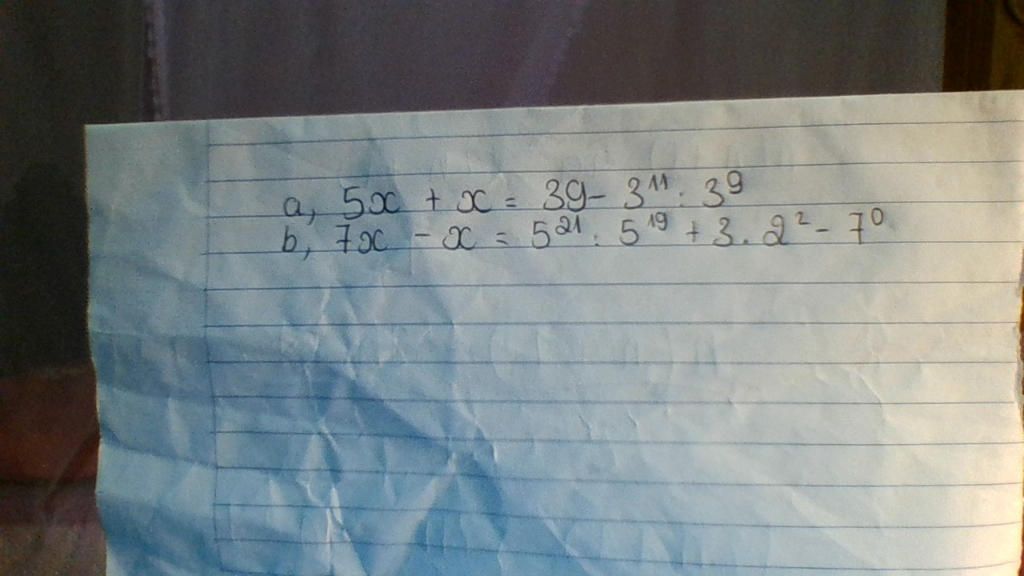 a, 5x + x = 39 - 3¹¹ : 3⁹
b, 7x - x = 5²¹ : 5¹⁹ + 3 . 2² - 7⁰